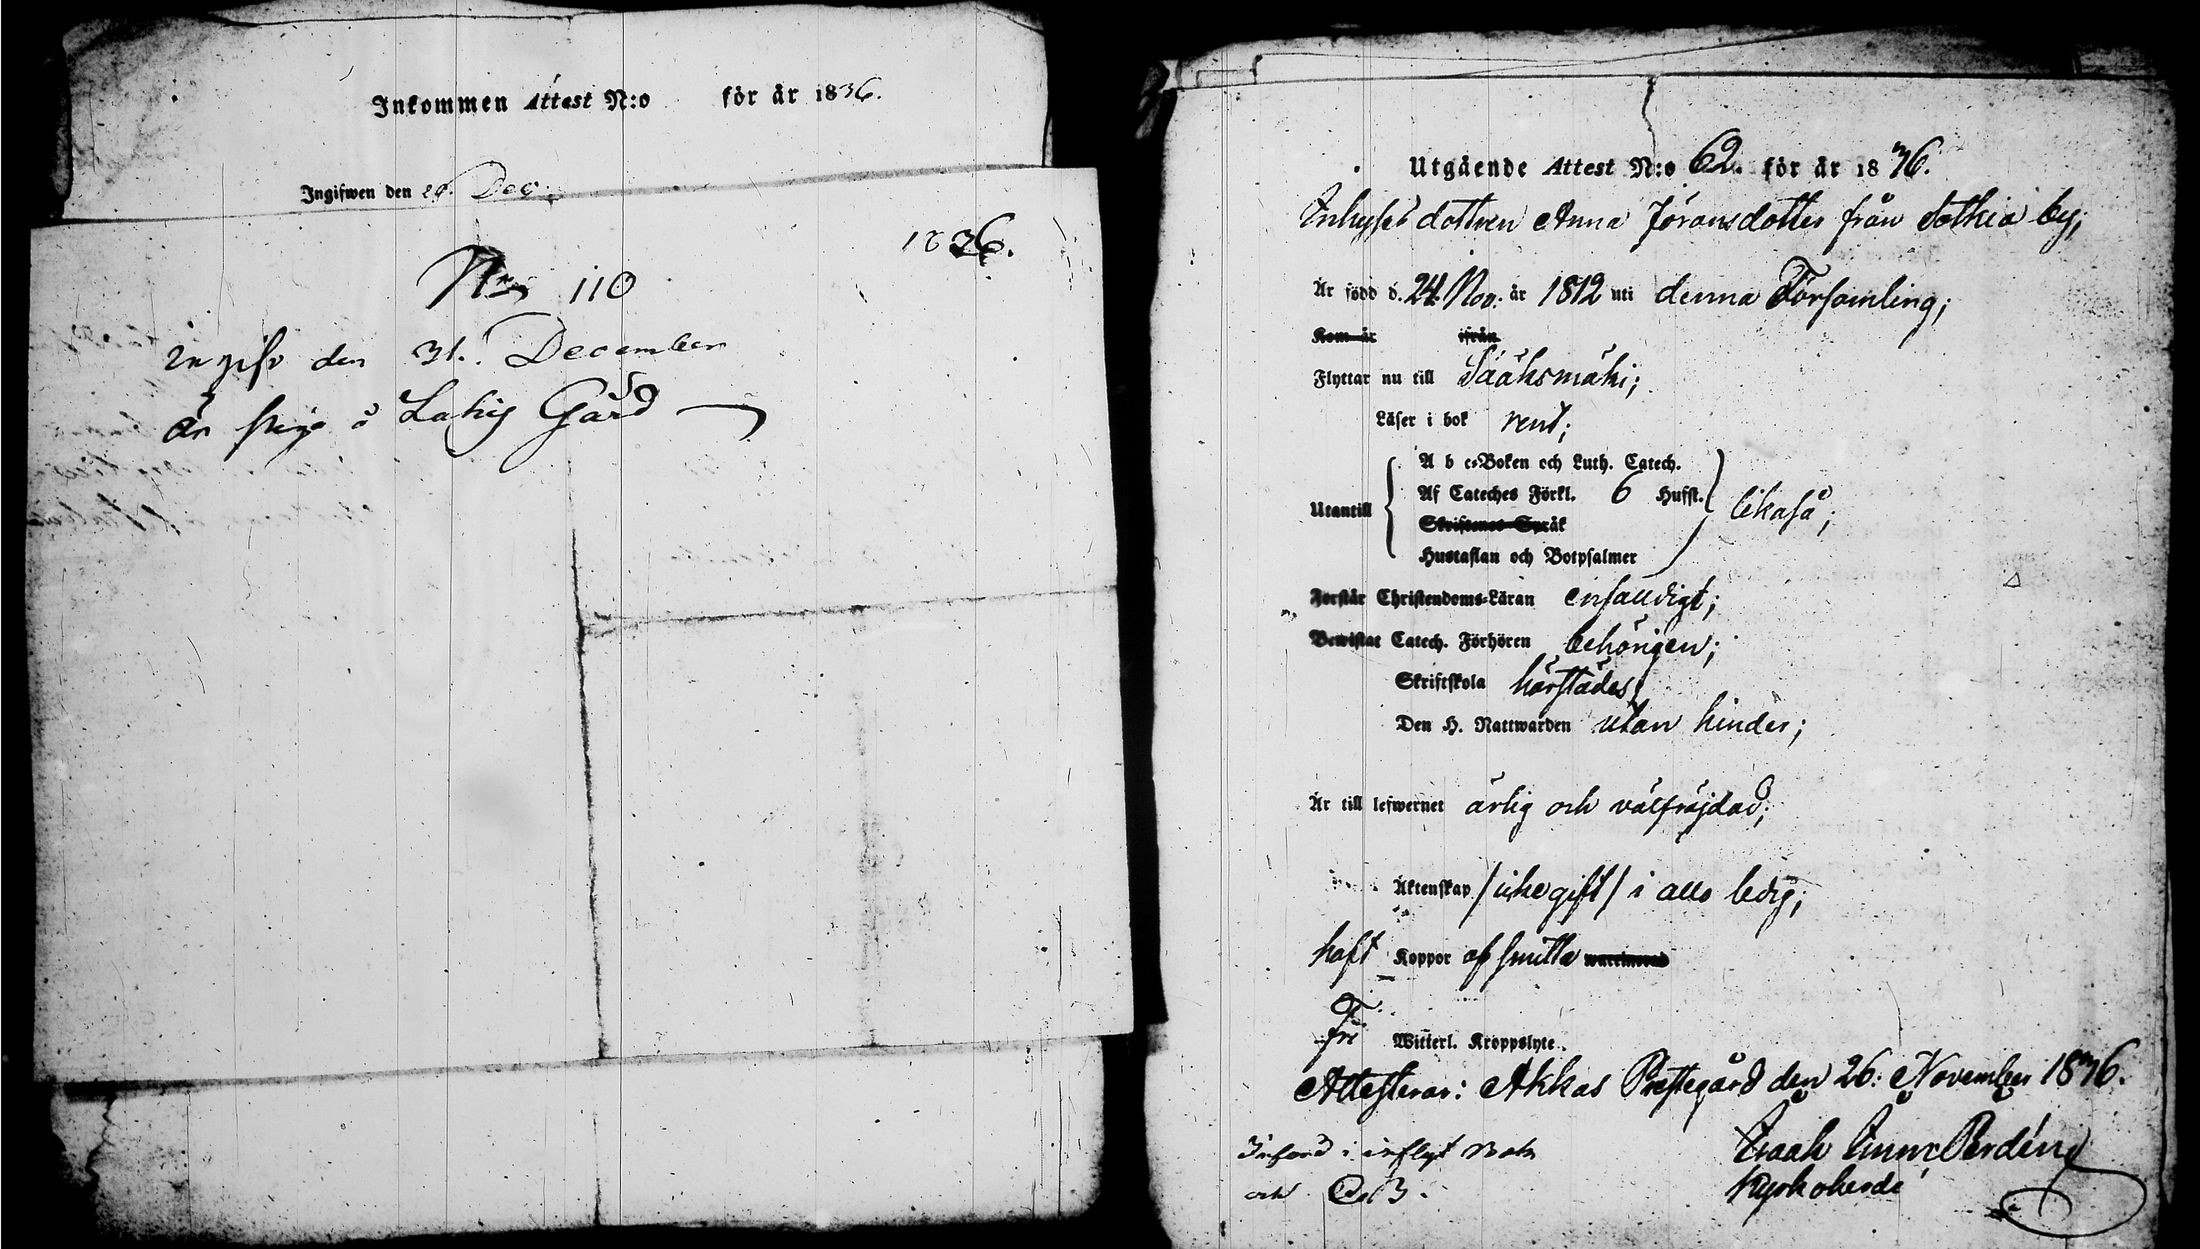 Inkommen Attest N:o för år 1836.
Ingifwen den 29. Dec.
1836.
110
den 31. December
är piga å Gård
Utgående Attest N:o 62. för år 1836.
Inhyses dottren Anna Jöransdotter från by;
Är född d. 24. Nov: år 1812 uti denna Församling;
Kom år ifrån
Flyttar nu till Sääksmäki;
Läser i bok rent;
A b c-Boken och Luth. Catech.
Af Cateches Förkl. 6 Hufst.
Utantill likaså;
Skriftenes Språk
Hustaflan och Botpsalmer
Förstår Christendoms-Läran enfaldigt;
Bewistat Catech. Förhören behörigen;
Skriftskola härstädes;
Den H. Nattwarden utan hinder;
Är till lefwernet ärlig och välfräjdad;
Äktenskap /icke gift/ i allo ledig;
haft Koppor af smitta
Fri Witterl. Kroppslyte.
Attesterar: Akkas Prestegård den 26: November 1836.
Införd i inflyt Boken
och 3.
Isaak
Kyrkoherde